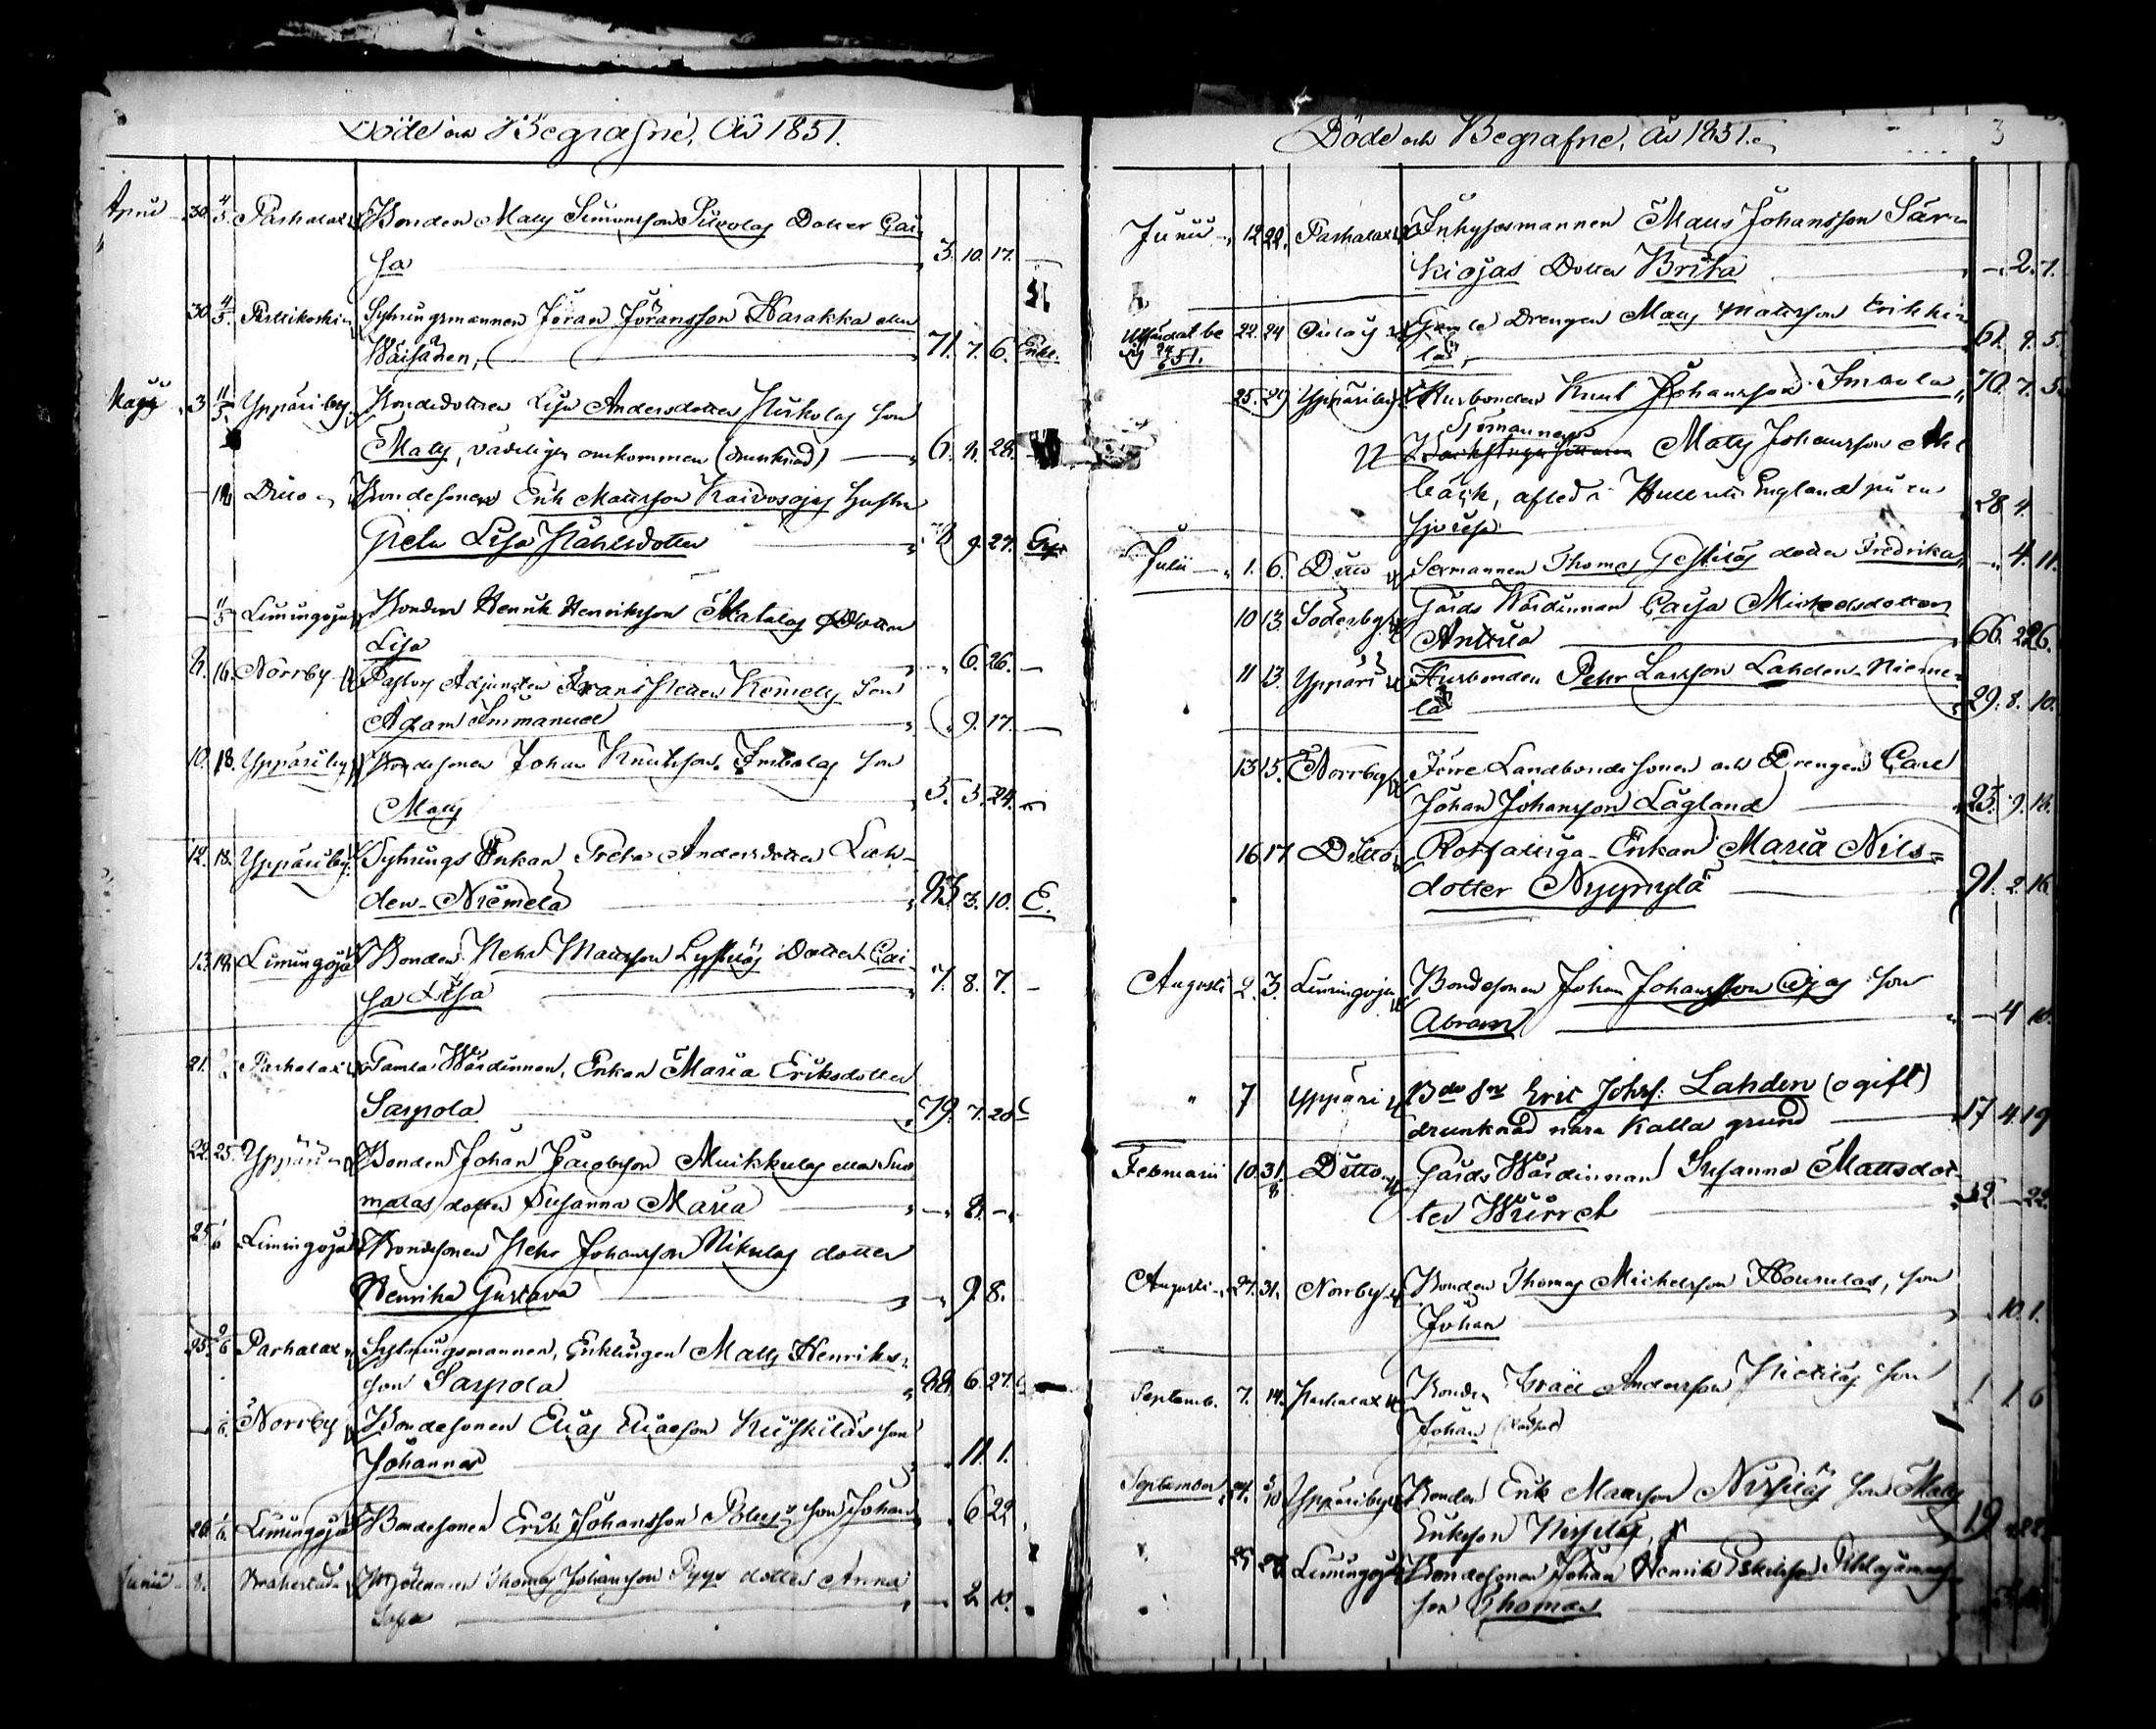 Döde och Begrafne, År 1851.
April 30. 4/5. Parhalax Bonden Mats Simonsson Siivolas Dotter Cai-
sa 3. 10. 17. —
30 4/5. Pattikoski Sytningsmannen Jöran Jöransson Harakka eller
Wäisänen, 71. 7. 6. Enkl.
Maji 3 11/5. Yppäriby Bondedottren Lisa Andersdotter son
Mats, vådeligen omkommen (drunknad) 6. 28.
Ditto Bondesonen Erik Mattsson Kaivosojas hustru
Greta Lisa Påhlsdotter 9. 27. G.
11/5 Limingoja Bonden Henrik Henriksson Matalas Dotter
Lisa 6. 26. —
16. Norrby Pastors Adjuncten Frans Petter Kemells son
Adam Immanuel 9. 17. —
10. 18. Yppäriby Bondesonen Johan Knutsson Imbolas son
Mats 5. 3. 24.
12. 18. Yppäriby Sytnings Enkan Greta Andersdotter Lah-
den-Niemelä 3. 10. E.
13. 18. Limingoja Bonden Pehr Mattsson Dotter Cai-
sa Lisa 7. 8. 7. —
21. Parhalax Gamla Wärdinnan, Enkan Maria Eriksdotter
Sarpola 79. 7. 28
22. 25. Yppäri Bonden Johan Jacobsson Muikkulas eller Suo
malas dotter Susanna Maria — 8. —
25 1/6 Limingoja Bondesonen Pehr Johansson Nikulas dotter
Henrika Gustava — 9. 8.
25. 9/6 Parhalax Sytningsmannen, Enklingen Mats Henriks-
son Sarpola 88. 6. 27.
— Norrby Bondesonen Elias Eliasson Kuiskiläs son
Johannes — 11. 1.
26. 1/6. Limingoja Bondesonen Erik Johansson son Johan 6 22
Junii 8. Brahestad Mjölnaren Thomas Johansson Pyys dotter Anna
Lisa — 2. 10.
Döde och Begrafne, År 1851. 3
Junii 12 22. Parhalax Inhysesmannen Mats Johansson Sär-
kiojas Dotter Brita — 2. 7.
Utfärdat be
vis 24/6 51. 22. 24 Gamle Drengen Mats Mattsson Erikki-
lä, 61. 9. 5.
25. 29 Yppäriby Husbonden Knut Johansson Imbola 70. 7. 5
Sjömannen
Mats Johansson Ahl
bäck, afled i Hull uti England på en
sjöresa 28 4.
Julii 1. 6. Ditto Sexmannen Thomas dotter Fredrika — 4. 11.
10 13. Söderby Gårds Wärdinnan Caisa Mickelsdotter
Anttila 66. 2 26.
11 13. Yppäri Husbonden Pehr Larsson Lahden-Nieme-
lä 29. 8. 10.
13 15. Norrby Förre Landbondesonen och Drengen Carl
Johan Johansson Lågland 25. 9. 13.
16 17 Ditto Rotfattiga Enkan Maria Nils-
dotter Nygryla 91. 2 16
Augusti 2. 3. Limingoja Bondesonen Johan Johansson Ojas son
Abram — 4 10.
" 7 Yppäri Bde Sn Eric Johss: Lahden (ogift)
drunknad nära Kalla grund 17 4. 19
Februarii 10. 31/8 Ditto Gårds Wärdinnan Susanna Mattsdot-
ter Wuirret 52 — 22.
Augusti 27. 31. Norrby Bonden Thomas Michelsson Hounulas, son
Johan 10. 1.
Septemb. 7. 14. Parhalax Bonden Israel Andersson Pietiläs son
Johan 1 1 6
September 5/10 Yppäriby Bonden Erik Mattsson son Mats
Eriksson 19
Limingoja Bondesonen Johan Henrik Eskilsson Pihlajamaas
son Thomas